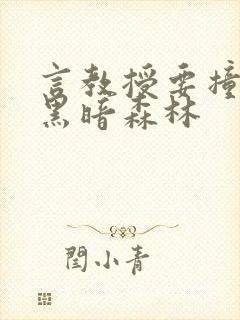 言教授要撞
黑暗森林
闰小青